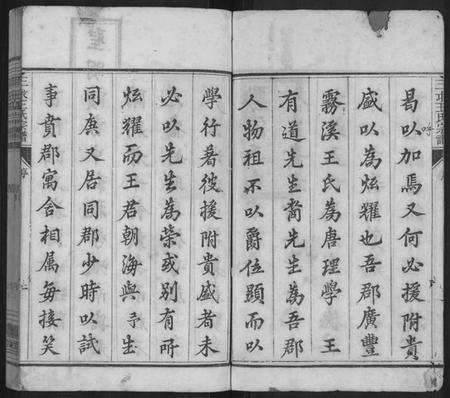 曷以加焉又何必援附貴
盛以為炫耀也吾郡廣豐
霧溪王氏為唐理學王
有道先生裔先生為吾郡
人物祖不以爵位顯而以
學行著彼援附貴盛者未
必以先生為榮或別有所
炫耀而王君朝海與予生
同庚又居同郡少時以試
事賁郡寓舍相属每接笑